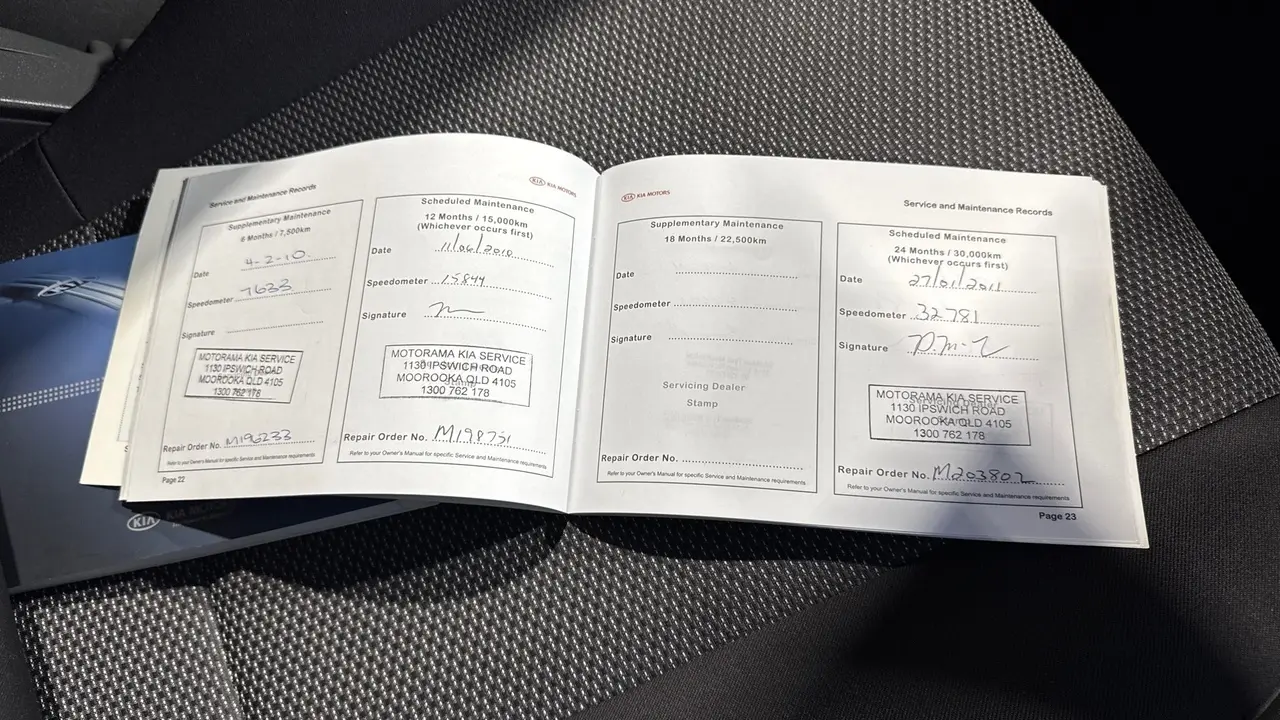 Service and Maintenance Records
KIA KIA MOTORS
Supplementary Maintenance
6 Months / 7,500km
Date 4-2-10.
Speedometer 7633
Signature
MOTORAMA KIA SERVICE
1130 IPSWICH ROAD
MOOROOKA QLD 4105
1300 762 178
Repair Order No. M196233
Refer to your Owner's Manual for specific Service and Maintenance requirements
Page 22
Scheduled Maintenance
12 Months / 15,000km
(Whichever occurs first)
Date 11/06/2010
Speedometer 15844
Signature
MOTORAMA KIA SERVICE
1130 IPSWICH ROAD
MOOROOKA QLD 4105
1300 762 178
Repair Order No. M198751
Refer to your Owner's Manual for specific Service and Maintenance requirements
KIA KIA MOTORS
Service and Maintenance Records
Supplementary Maintenance
18 Months / 22,500km
Date
Speedometer
Signature
Servicing Dealer
Stamp
Repair Order No.
Refer to your Owner's Manual for specific Service and Maintenance requirements
Scheduled Maintenance
24 Months / 30,000km
(Whichever occurs first)
Date 27/01/2011
Speedometer 32781
Signature
MOTORAMA KIA SERVICE
1130 IPSWICH ROAD
MOOROOKA QLD 4105
1300 762 178
Repair Order No. M203802
Refer to your Owner's Manual for specific Service and Maintenance requirements
Page 23
KIA KIA MOTORS